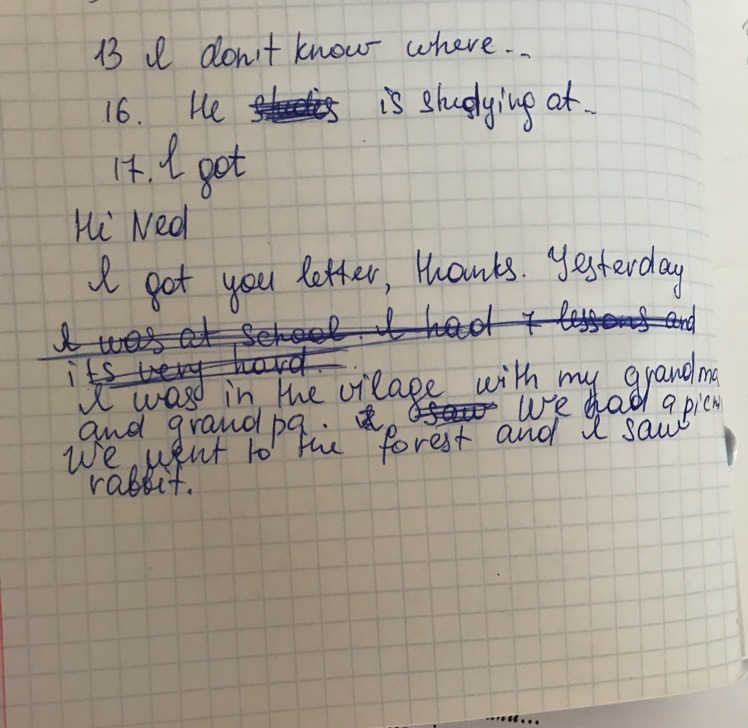 13 I don't know where..
16. He studies is studying at..
17. I got
Hi Ned
I got you letter, thanks. Yesterday
I was at school. I had 7 lessons and
its very hard.
I was in the vilage with my grandma
and grandpa. I saw We had a picn
We went to the forest and I saw
rabbit.